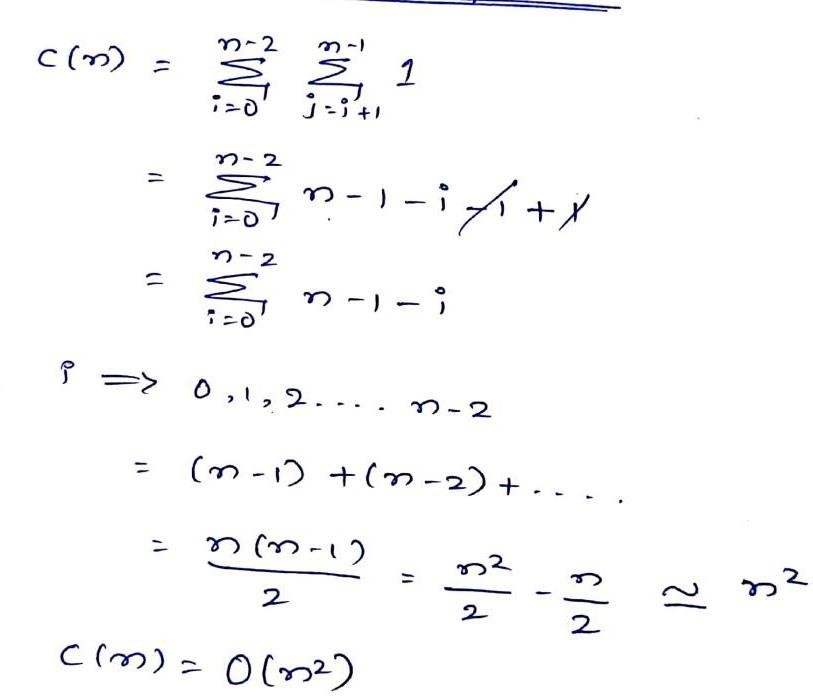 C(n) = \sum_{i=0}^{n-2} \sum_{j=i+1}^{n-1} 1
= \sum_{i=0}^{n-2} n-1-i-1+1
= \sum_{i=0}^{n-2} n-1-i
i => 0,1,2.... n-2
= (n-1)+(n-2)+....
= \frac{n(n-1)}{2} = \frac{n^2}{2} - \frac{n}{2} ≃ n^2
C(n) = O(n^2)